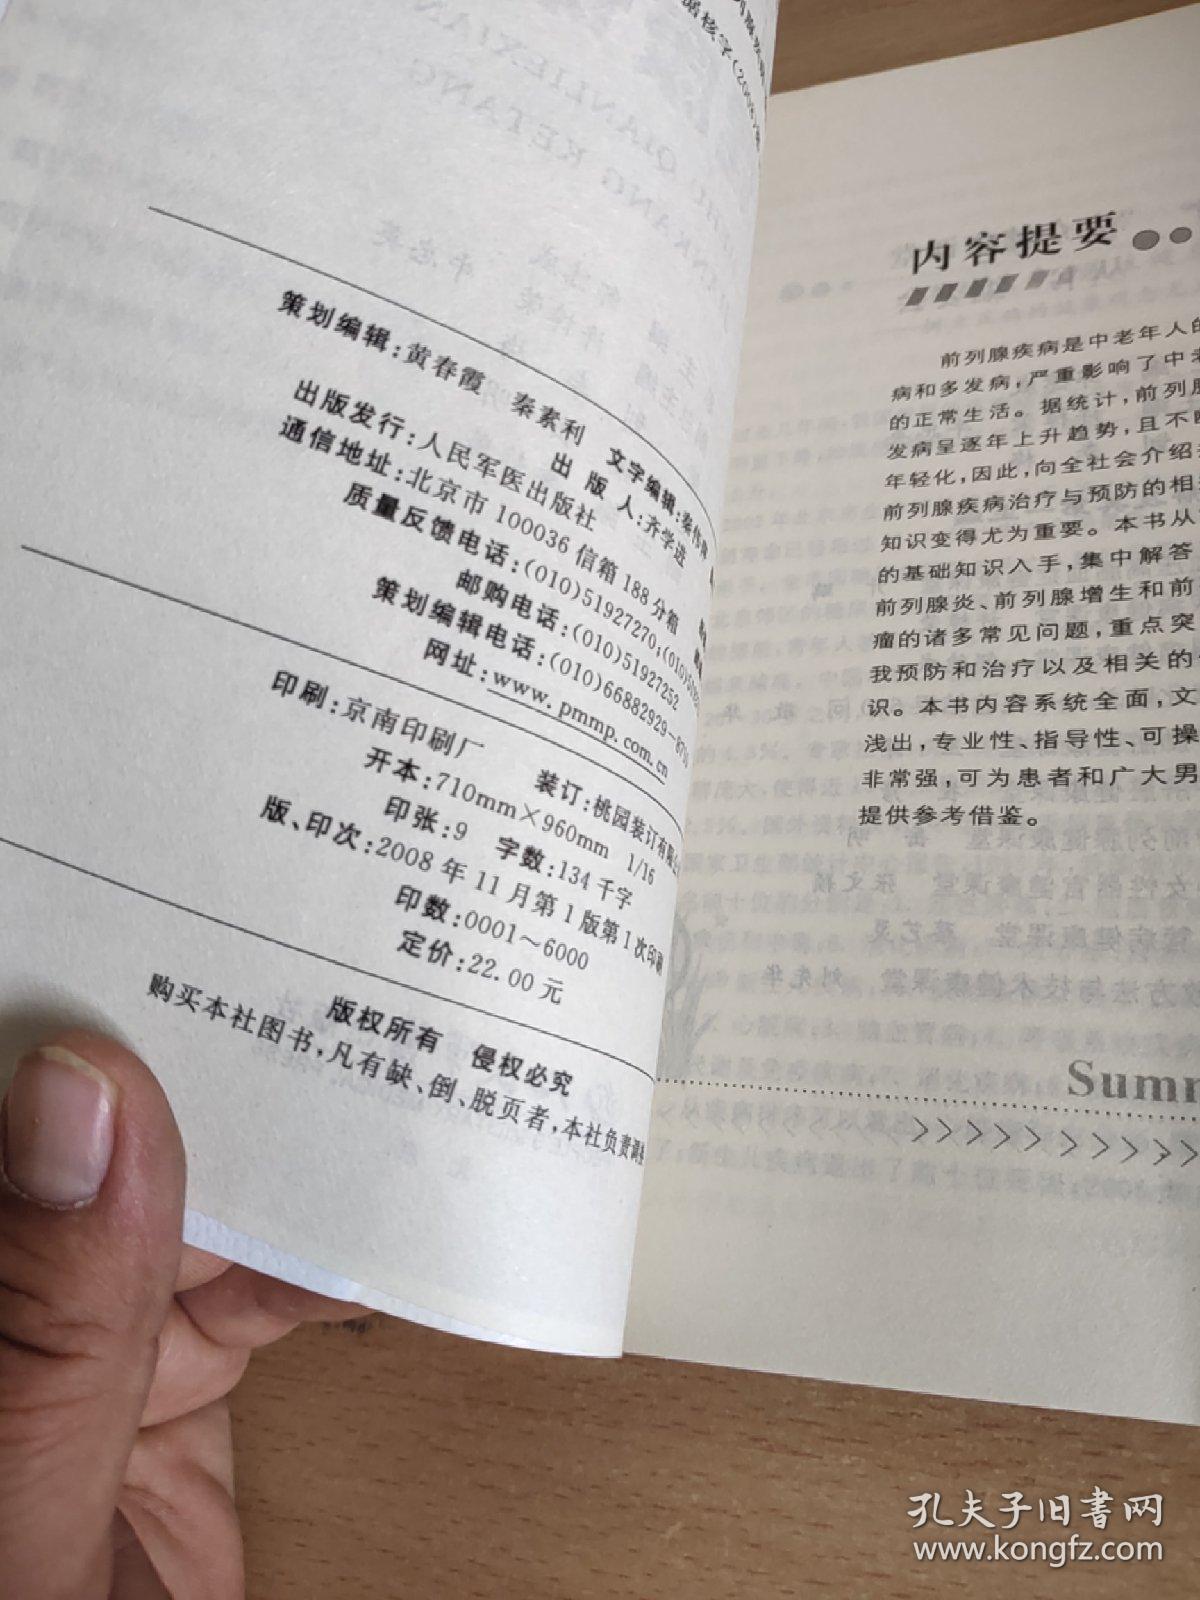 策划编辑:黄春霞　秦素利　文字编辑:秦
出版人:齐学进
出版发行:人民军医出版社
通信地址:北京市100036信箱188分箱
质量反馈电话:(010)51927270;(010)
邮购电话:(010)51927252
策划编辑电话:(010)66882929-
网址:www.pmmp.com.cn
印刷:京南印刷厂　装订:桃园装订有限
开本:710mm×960mm　1/16
印张:9　字数:134千字
版、印次:2008年11月第1版第1次印刷
印数:0001～6000
定价:22.00元
版权所有　侵权必究
购买本社图书,凡有缺、倒、脱页者,本社负责调
内容提要
前列腺疾病是中老年人的
病和多发病,严重影响了中老
的正常生活。据统计,前列腺
发病呈逐年上升趋势,且不断
年轻化,因此,向全社会介绍
前列腺疾病治疗与预防的相
知识变得尤为重要。本书从
的基础知识入手,集中解答
前列腺炎、前列腺增生和前
瘤的诸多常见问题,重点突
我预防和治疗以及相关的
识。本书内容系统全面,文
浅出,专业性、指导性、可操
非常强,可为患者和广大男
提供参考借鉴。
Summ
孔夫子旧书网
www.kongfz.com